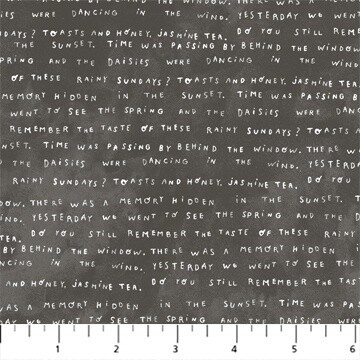 WERE DANCING IN THE WIND. YESTERDAY WE WENT
DAYS? TOASTS AND HONEY, JASMINE TEA. DO YOU STILL REMEM
THE SUNSET. TIME WAS PASSING BY BEHIND THE WINDOW
PRING AND THE DAISIES WERE DANCING IN THE WIND.
OF THESE RAINY SUNDAYS? TOASTS AND HONEY, JASMINE TEA.
MEMORY HIDDEN IN THE SUNSET. TIME WAS PASSING B
WENT TO SEE THE SPRING AND THE DAISIES WERE DANC
REMEMBER THE TASTE OF THESE RAINY SUNDAYS? TOASTS
NSET. TIME WAS PASSING BY BEHIND THE WINDOW. THERE W
D THE DAISIES WERE DANCING IN THE WIND.
RAINY SUNDAYS? TOASTS AND HONEY, JASMINE TEA. DO YOU
DOW. THERE WAS A MEMORY HIDDEN IN THE SUNSET. T
IND. YESTERDAY WE WENT TO SEE THE SPRING AND THE D
TEA. DO YOU STILL REMEMBER THE TASTE OF THESE RAINY
BY BEHIND THE WINDOW. THERE WAS A MEMORY HIDDEN
NCING IN THE WIND. YESTERDAY WE WENT TO SEE THE S
AND HONEY, JASMINE TEA. DO YOU STILL REMEMBER THE TAST
WAS A MEMORY HIDDEN IN THE SUNSET. TIME WAS PASS
Y WE WENT TO SEE THE SPRING AND THE DAISIES WERE
1 2 3 4 5 6